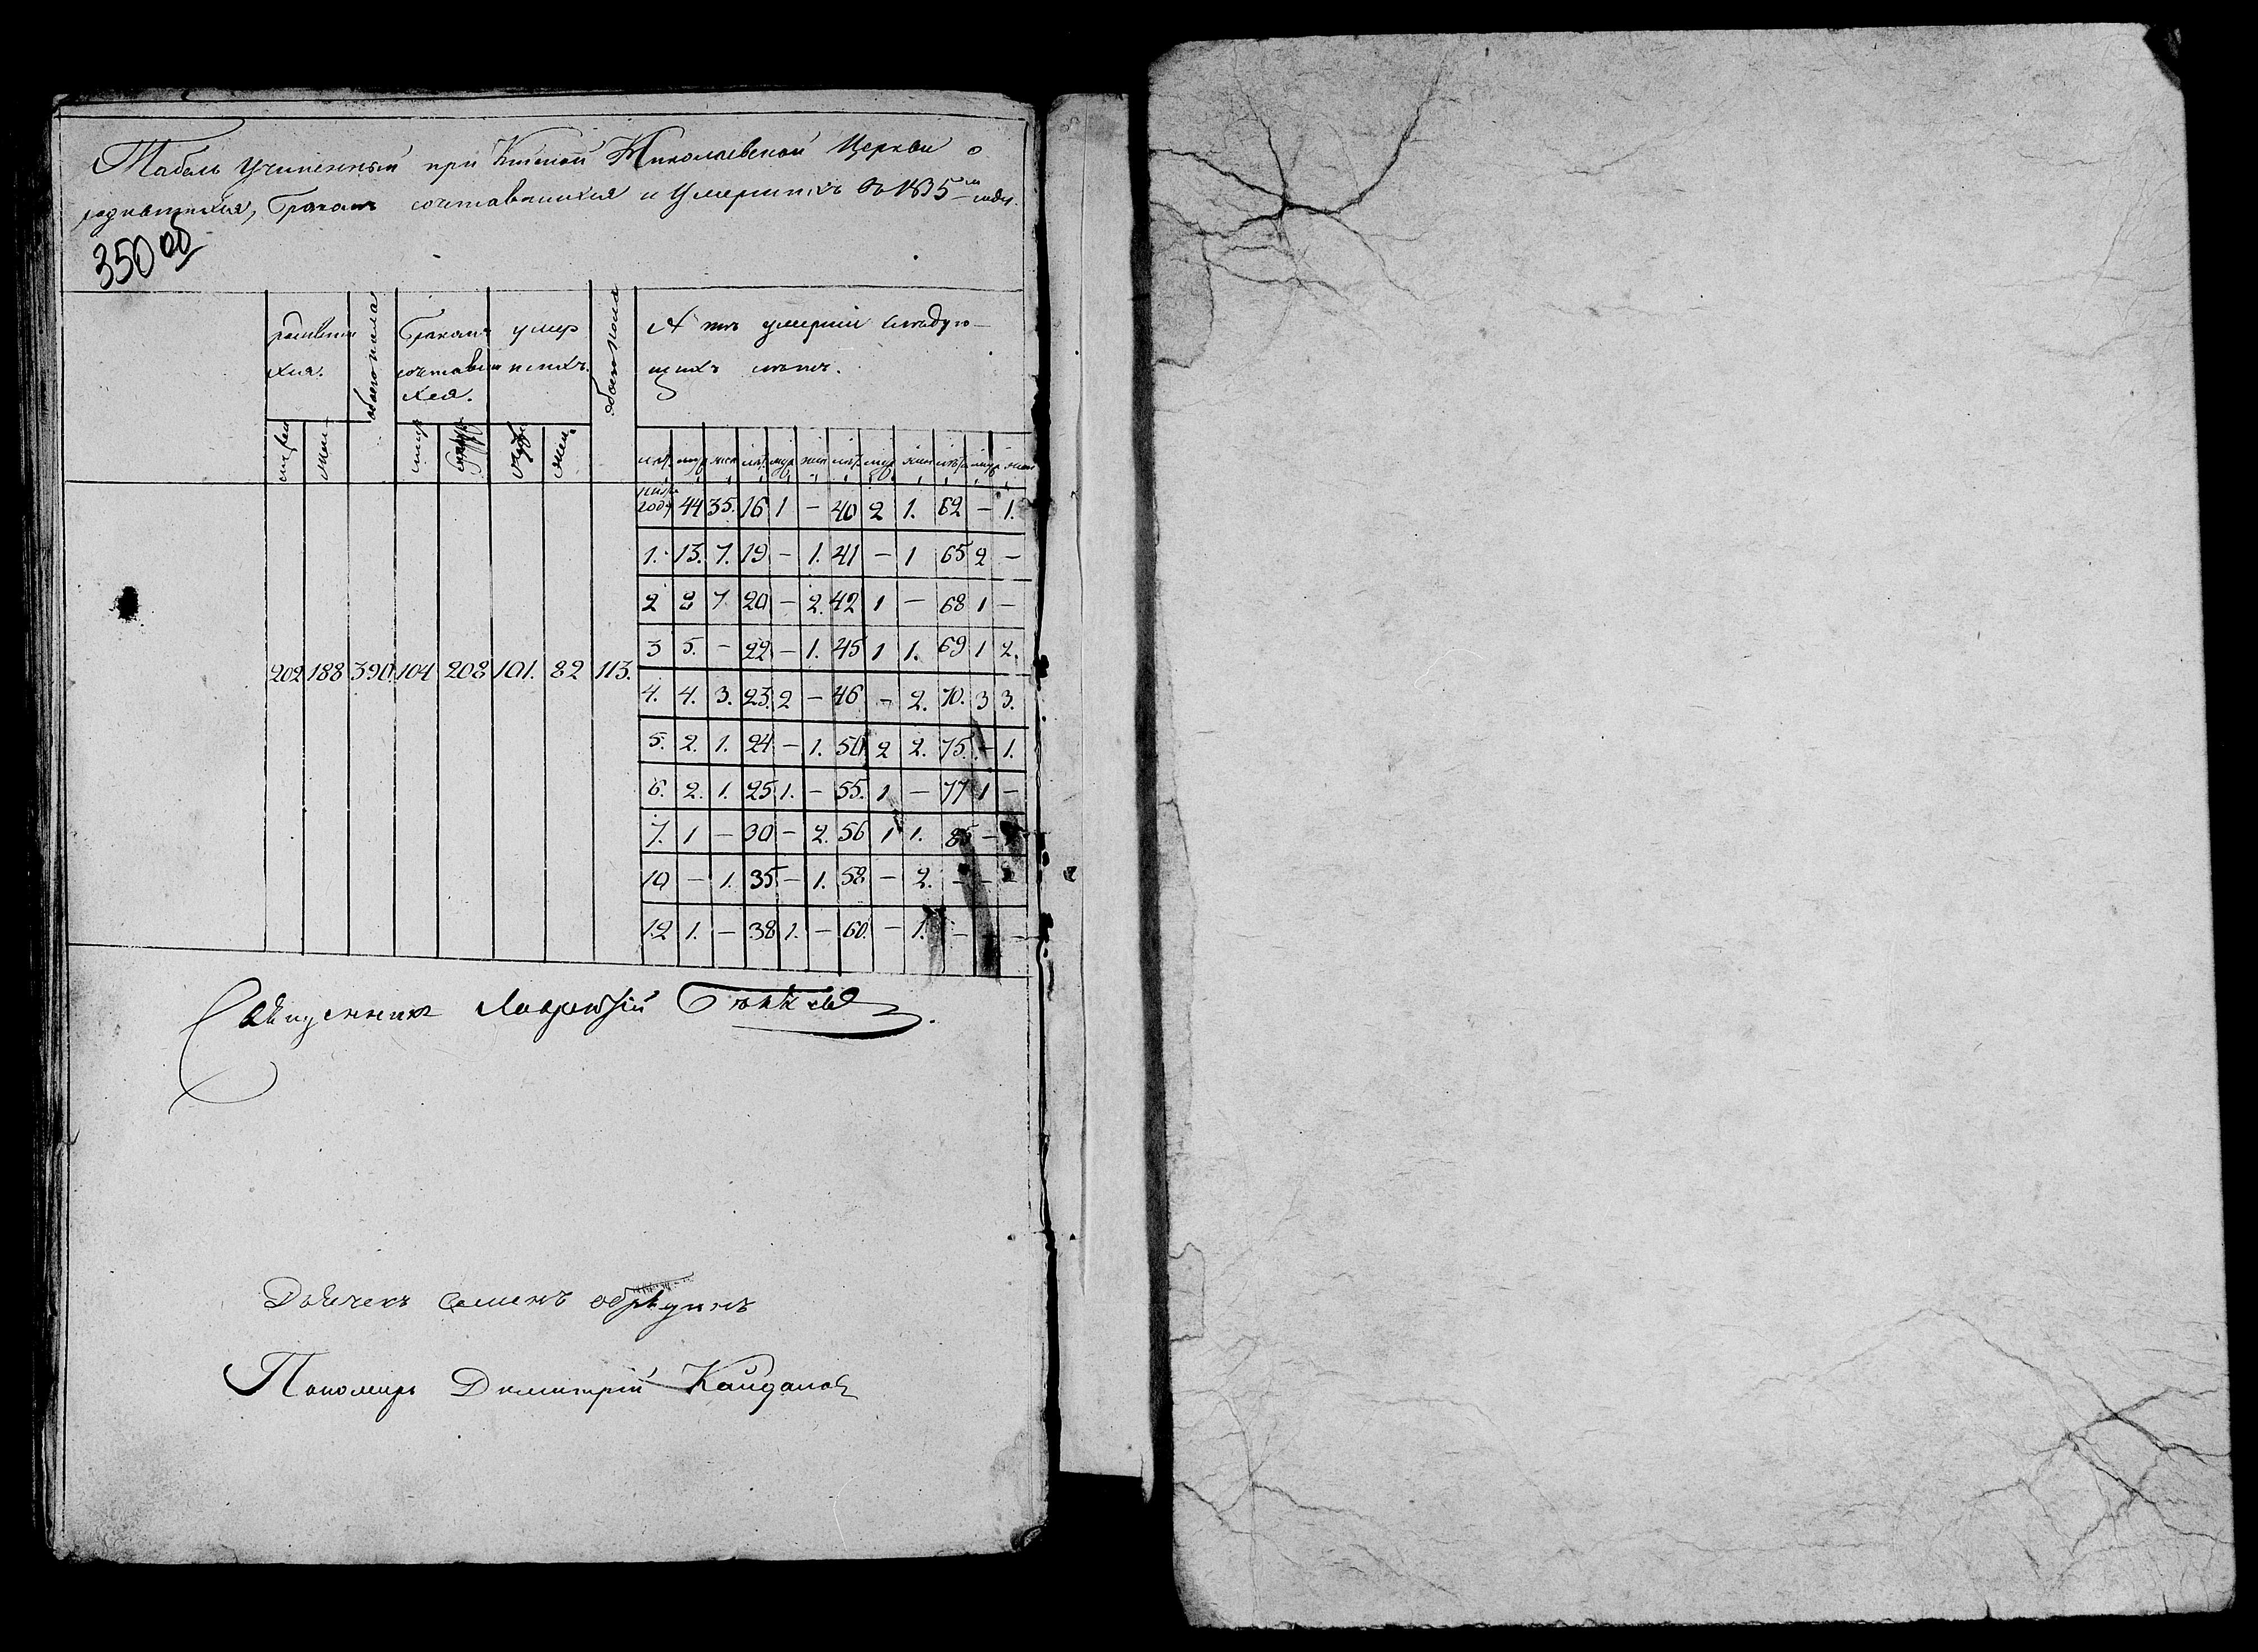 Табель Учиненный при Николаевской Церкви о
родившихся, Бракомъ сочетавшихся и Умершихъ въ 1835 году.
350 об
родивши
хся.
обоего пола
Бракомъ
сочетавши
хся.
умер
шихъ.
обоего пола
А умерши следую-
щихъ летъ.
муж. жен. муж. жен.
лет. муж. жен. лет. муж. жен. лет. муж. жен. лет. муж. жен.
году 44 35. 16 1 - 40 2 1. 62 - 1.
1. 13. 7. 19 - 1. 41 - 1 65 2 -
2 8 7 20 - 2. 42 1 - 68 1 -
3 5. - 22 - 1. 45 1 1. 69 1 2.
202 188 390 104 208 101. 82 113.
4. 4. 3. 23. 2 - 46 - 2. 70. 3 3.
5. 2. 1. 24 - 1. 50 2 2. 75. - 1.
6. 2. 1. 25 1. - 55. 1 - 77 1 -
7. 1 - 30 - 2. 56 1 1. 85 -
10 - 1. 35 - 1. 58 - 2. - - -
12 1. - 38 1. - 60. - 1. - - -
Священник Лаврентий
Дьячекъ Семенъ
Пономарь Димитрий Кайданов